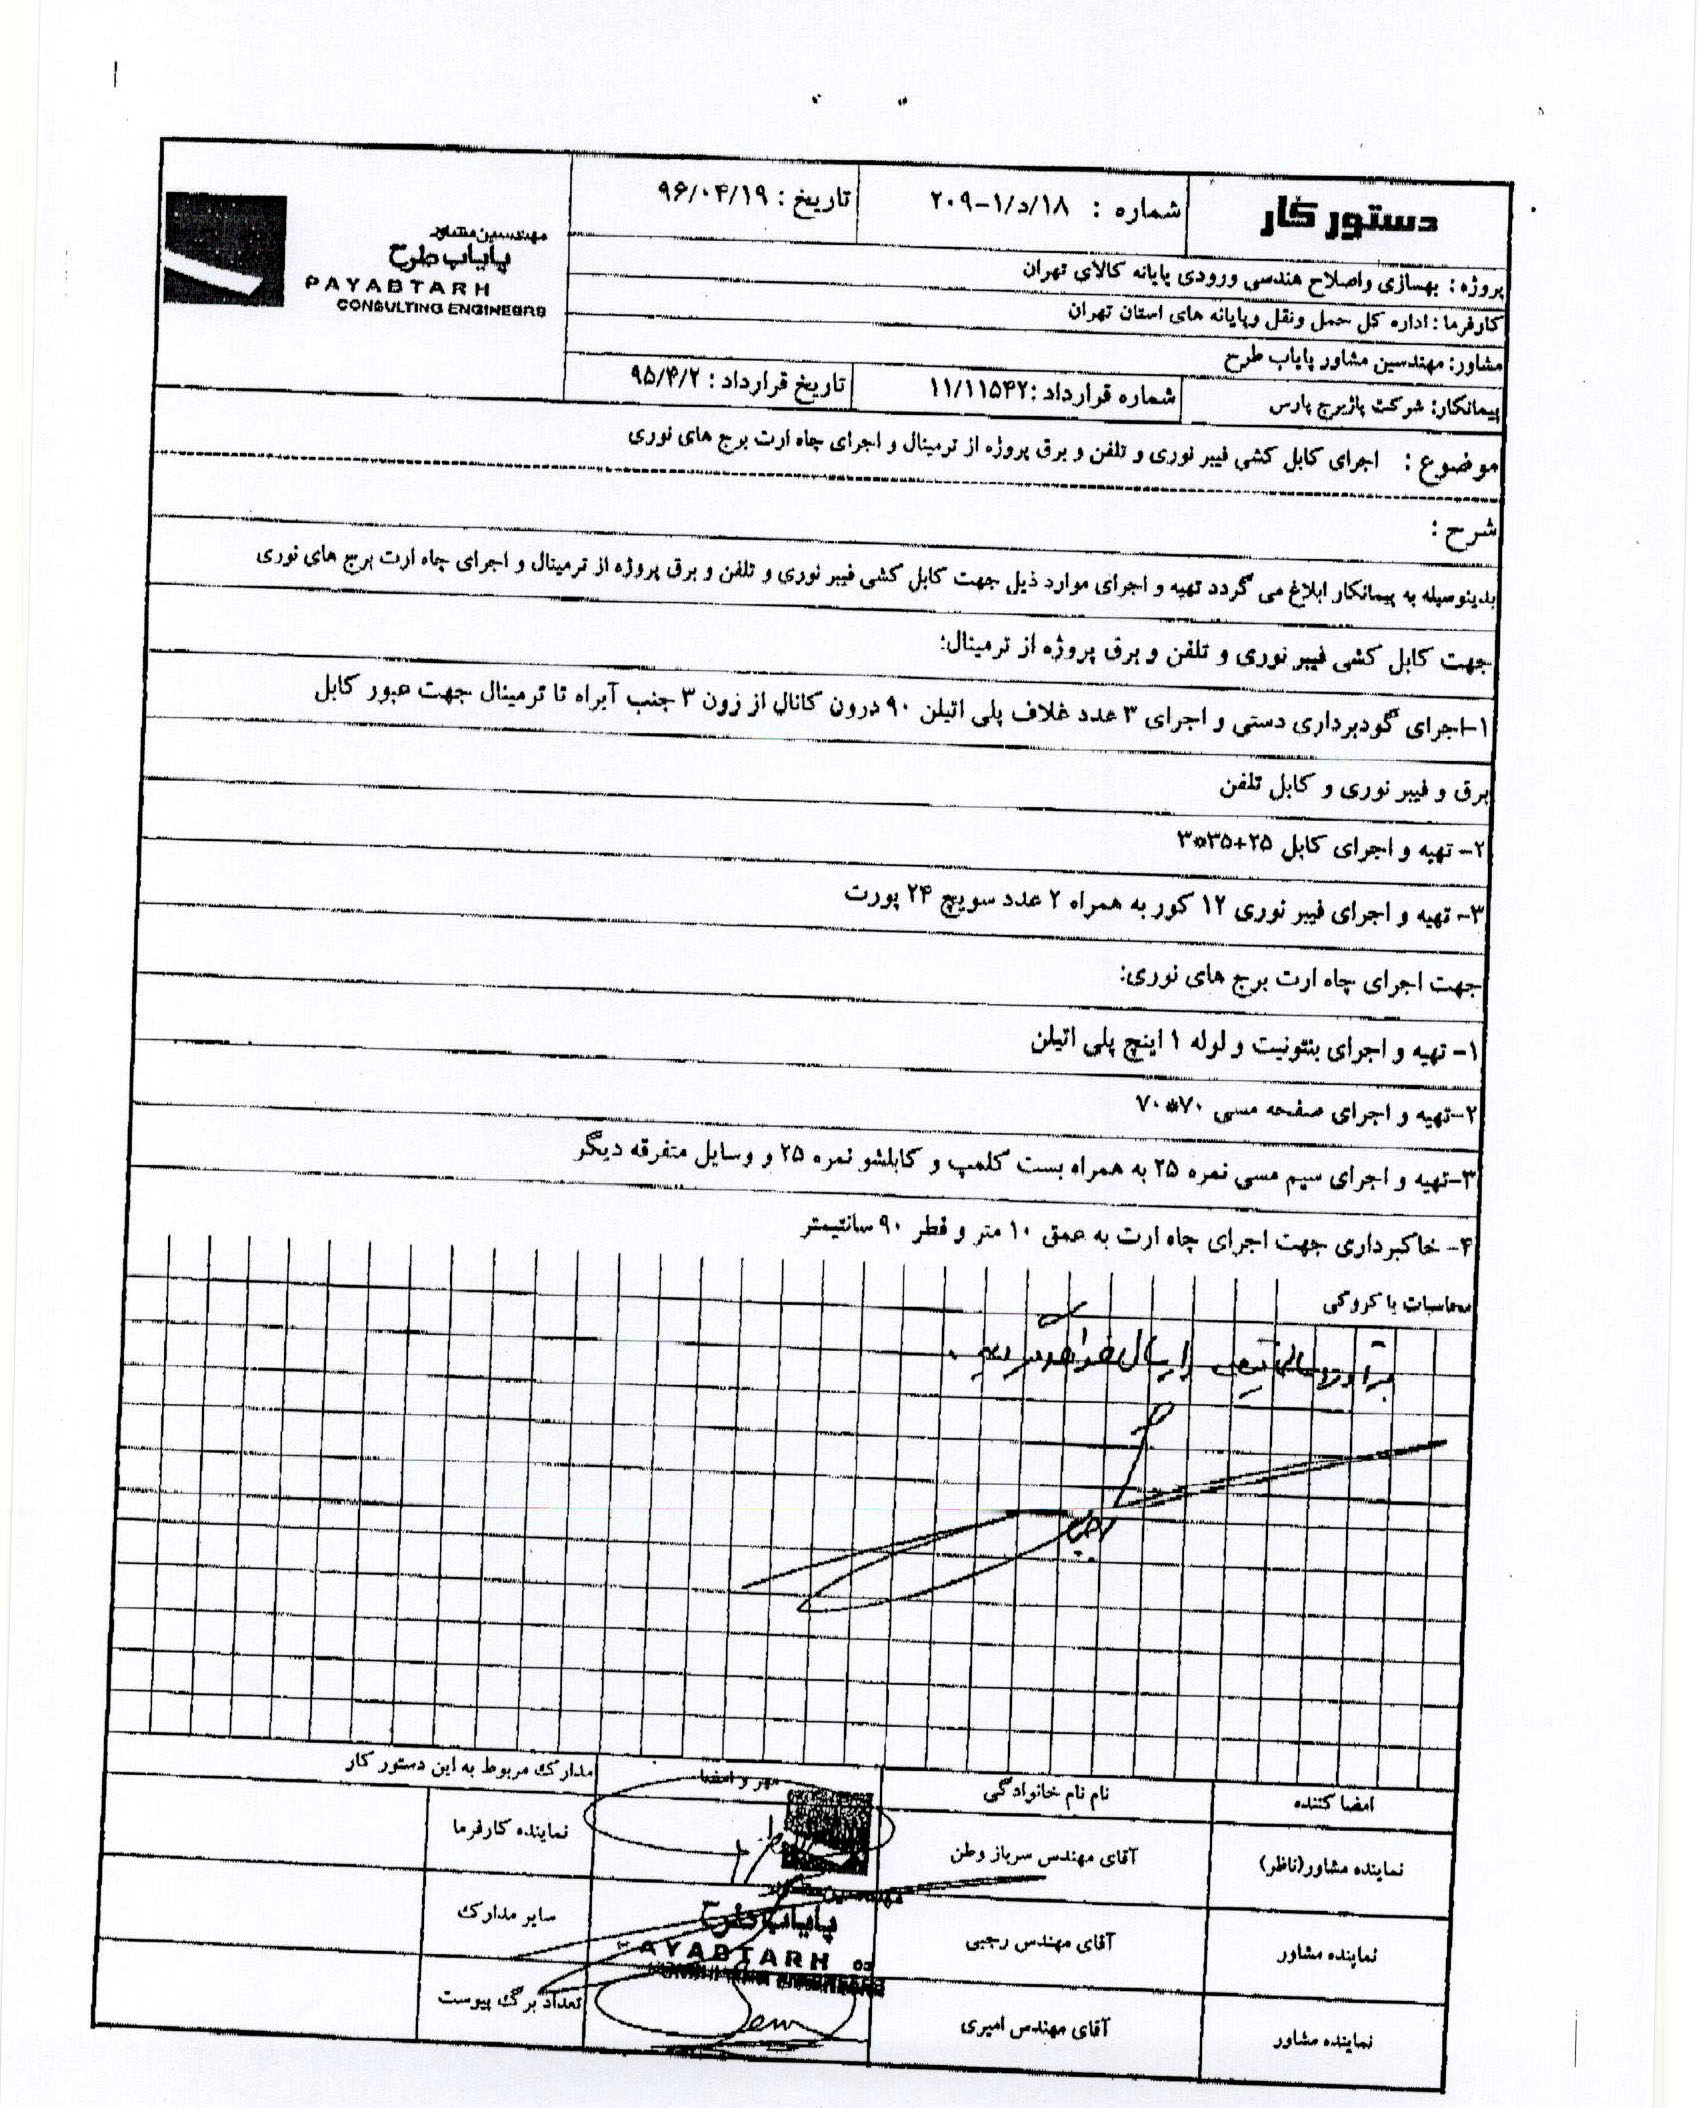 دستور کار
شماره : ۲۰۹-۱/د/۱۸
تاریخ : ۹۶/۰۴/۱۹
مهندسین مشاور
پایاب طرح
PAYABTARH
CONSULTING ENGINEERS
پروژه : بهسازی واصلاح هندسی ورودی پایانه کالای تهران
کارفرما : اداره کل حمل ونقل وپایانه های استان تهران
مشاور: مهندسین مشاور پایاب طرح
پیمانکار: شرکت پاژبرج پارس
شماره قرارداد :۱۱/۱۱۵۴۲
تاریخ قرارداد : ۹۵/۴/۲
موضوع : اجرای کابل کشی فیبر نوری و تلفن و برق پروژه از ترمینال و اجرای چاه ارت برج های نوری
شرح :
بدینوسیله به پیمانکار ابلاغ می گردد تهیه و اجرای موارد ذیل جهت کابل کشی فیبر نوری و تلفن و برق پروژه از ترمینال و اجرای چاه ارت برج های نوری
جهت کابل کشی فیبر نوری و تلفن و برق پروژه از ترمینال:
۱-اجرای گودبرداری دستی و اجرای ۳ عدد غلاف پلی اتیلن ۹۰ درون کانال از زون ۳ جنب آبراه تا ترمینال جهت عبور کابل
برق و فیبر نوری و کابل تلفن
۲- تهیه و اجرای کابل ۲۵+۳۵*۳
۳- تهیه و اجرای فیبر نوری ۱۲ کور به همراه ۲ عدد سویچ ۲۴ پورت
جهت اجرای چاه ارت برج های نوری:
۱- تهیه و اجرای بنتونیت و لوله ۱ اینچ پلی اتیلن
۲-تهیه و اجرای صفحه مسی ۷۰*۷۰
۳-تهیه و اجرای سیم مسی نمره ۲۵ به همراه بست کلمپ و کابلشو نمره ۲۵ و وسایل متفرقه دیگر
۴- خاکبرداری جهت اجرای چاه ارت به عمق ۱۰ متر و قطر ۹۰ سانتیمتر
محاسبات یا کروکی
امضا کننده
نام نام خانوادگی
مهر و امضا
مدارک مربوط به این دستور کار
نماینده مشاور(ناظر)
آقای مهندس سرباز وطن
نماینده کارفرما
نماینده مشاور
آقای مهندس رجبی
پایاب طرح
AYABTARH
سایر مدارک
نماینده مشاور
آقای مهندس امیری
تعداد برگ پیوست